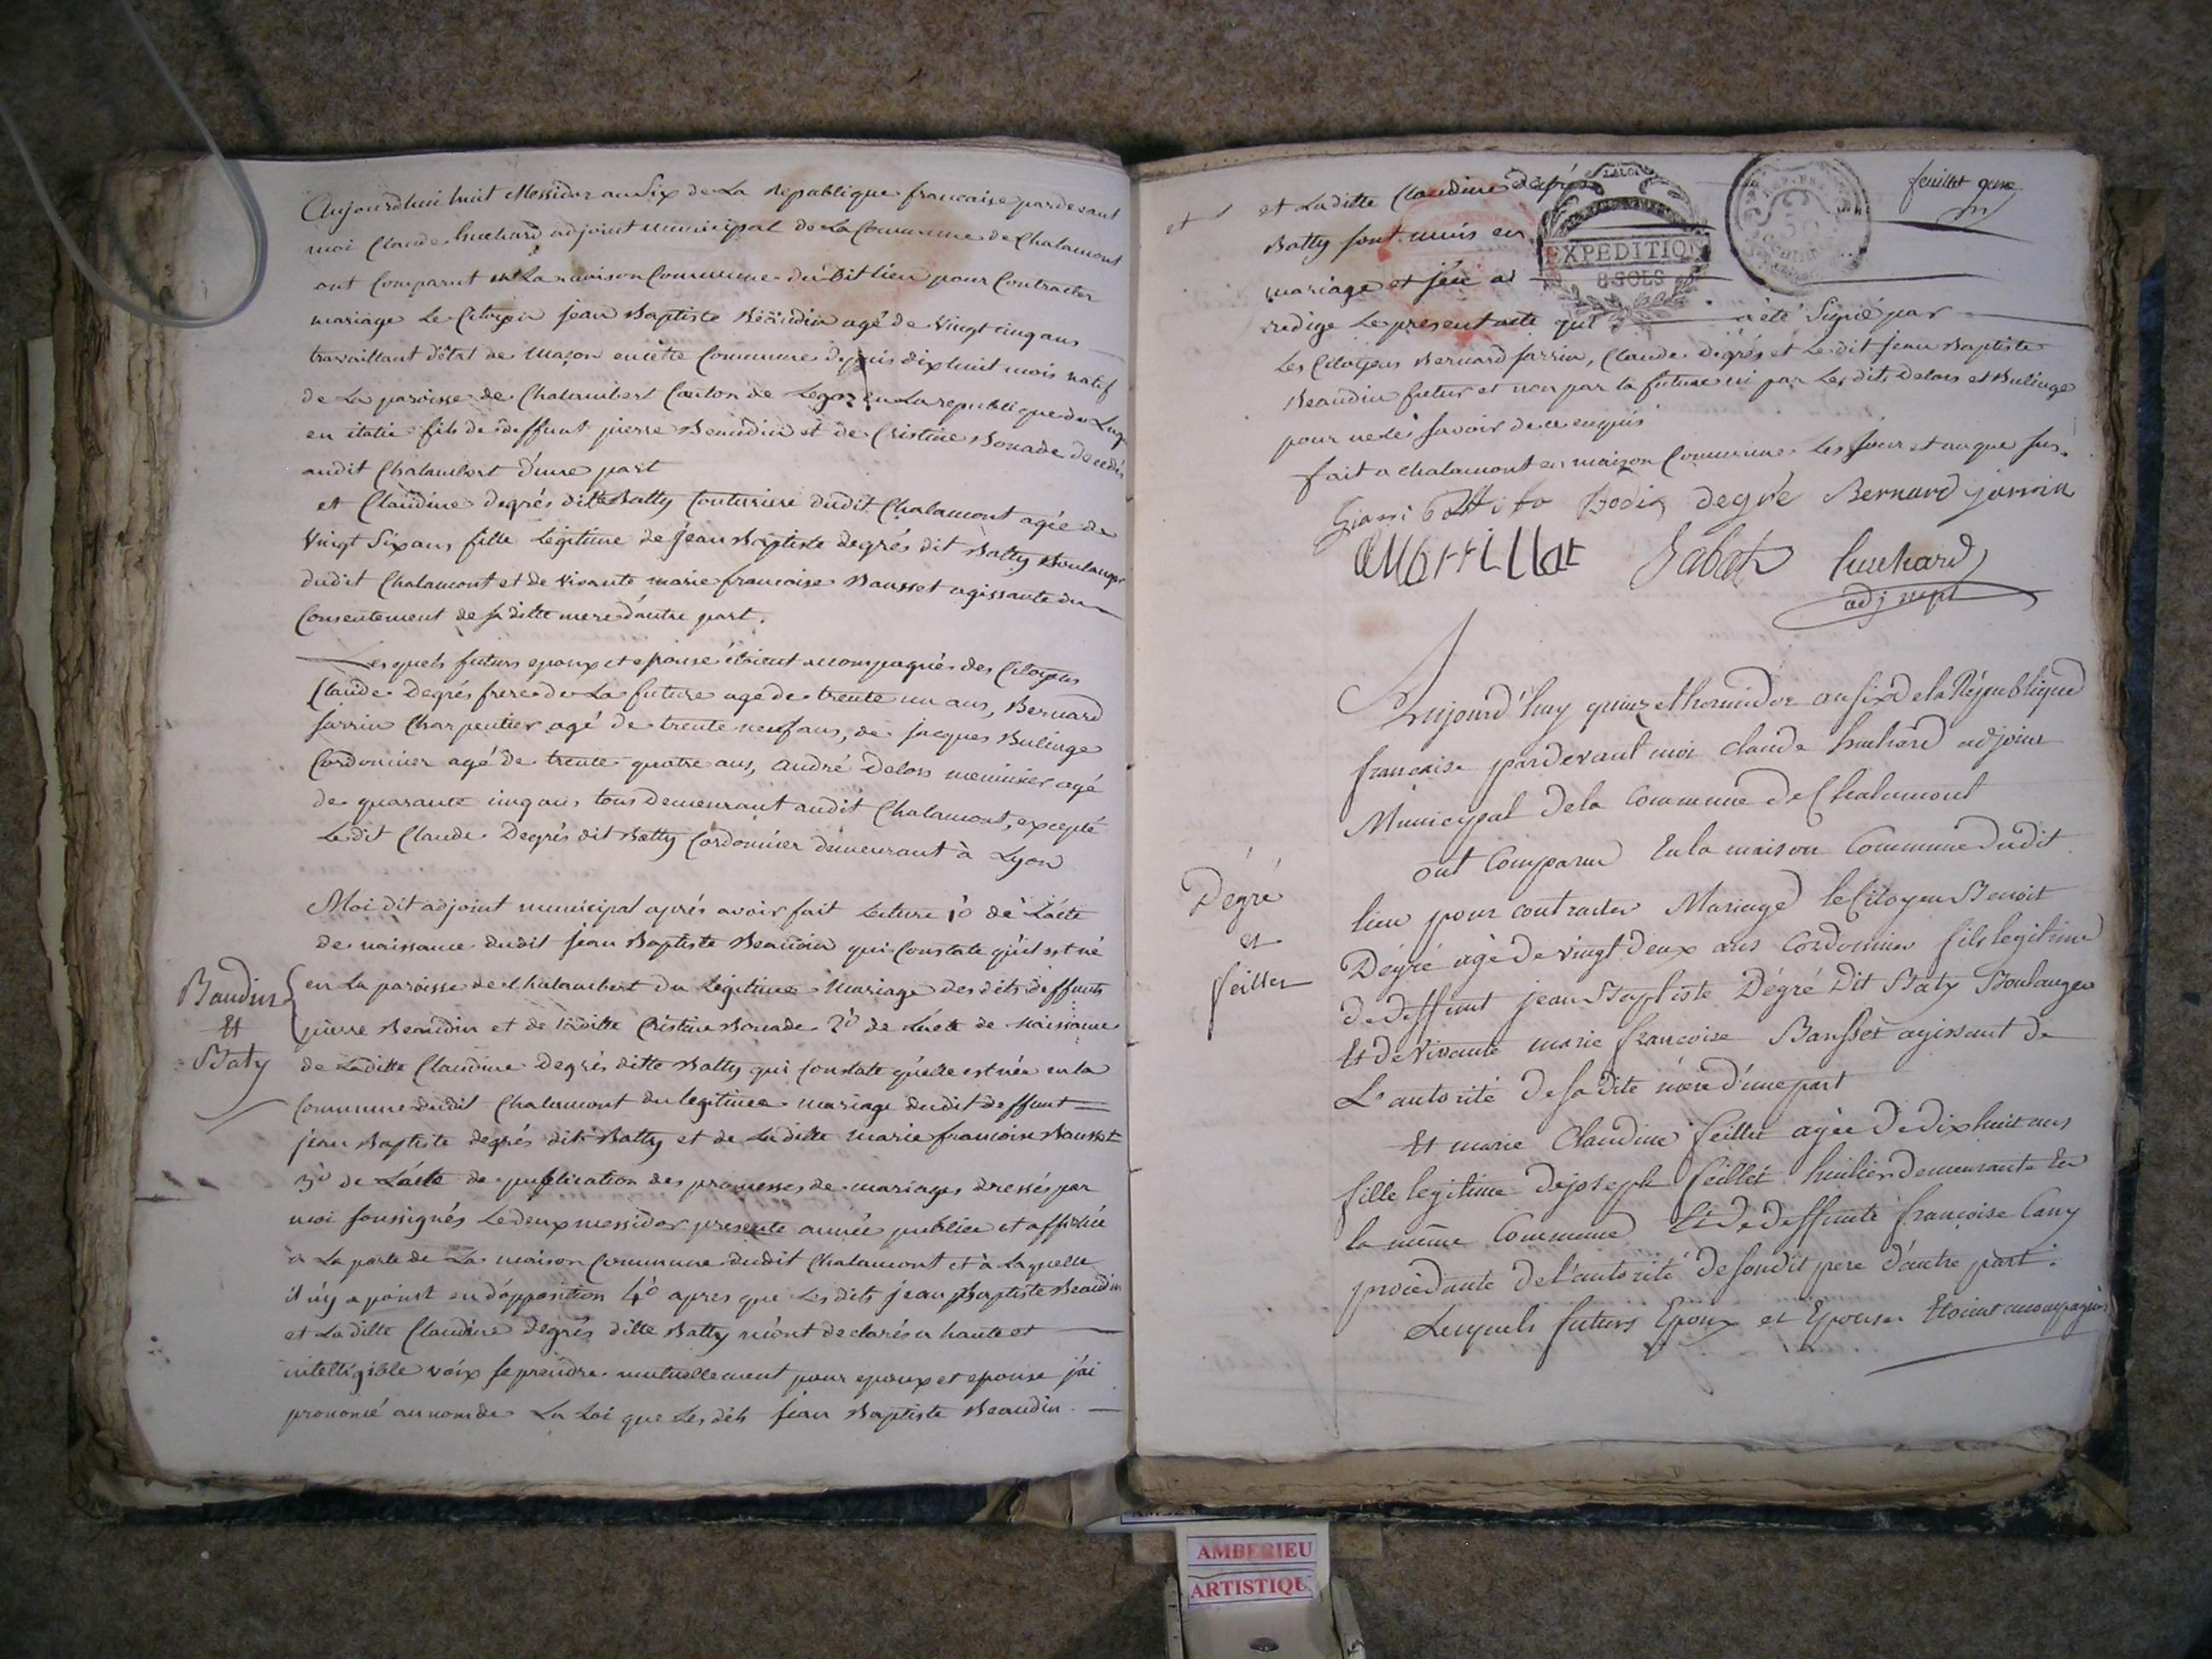 Aujourdhui huit Messidor an Six de La Republique francaise pardevant
moi Claude huchard adjoint municipal de La Commune de Chalamont
ont Comparut en La maison Commune du Dit lieu pour Contracter
mariage Le Citoyin jean Baptiste Beaudin agé de Vingt cinq ans
travaillant d'état de Maçon en cette Commune depuis dixhuit mois natif
de La paroisse de Chalambert Canton de en La republique de
en italie fils de deffunt pierre Beaudin et de Cristine Bonade decedés
audit Chalambert d'une part
et Claudine degrés ditte Batty Couturiere dudit Chalamont agée de
Vingt Six ans, fille Légitime de jean Baptiste degrés dit Batty Boulanger
dudit Chalamont et de vivante marie francoise Bausset agissante du
Consentement de sa ditte mere d'autre part.
Lesquels futurs epoux et epouse étoient accompagnés des Citoyens
Claude Degrés frere de La future agé de trente un ans, Bernard
jarrin Charpentier agé de trente neuf ans, de jacques Bulinge
Cordonnier agé de trente quatre ans, andré Delors menuisier agé
de quarante cinq ans, tous Demeurant audit Chalamont, excepté
Le dit Claude Degrés dit Batty Cordonnier demeurant à Lyon
Moi dit adjoint municipal aprés avoir fait Lecture 1o de L'acte
de naissance dudit jean Baptiste Beaudin qui Constate qu'il est né
en La paroisse de Chalambert du Légitime Mariage des dits deffunts
pierre Beaudin et de laditte Cristine Bonade 2o de L'acte de naissance
de Laditte Claudine Degrés ditte Batty qui Constate qu'elle est née en la
Commune dudit Chalamont du legitime mariage dudit deffunt
jean Baptiste degrés dit Batty et de Laditte marie francoise Bausset
3o de L'acte de publication des promesses de mariages dressés par
moi soussignés Le deux messidor presente année publiée et affichée
à La porte de La maison Commune dudit Chalamont et à Laquelle
il n'y a point eu d'opposition 4o apres que Les dits jean Baptiste Beaudin
et La ditte Claudine degrés ditte Batty m'ont declarés a haute et
intelligible voix se prendre mutuellement pour epoux et epouse j'ai
prononcé au nom de La Loi que Les dits jean Baptiste Beaudin
Baudin
Et
Baty
feuillet onze
et
et Laditte Claudine degrés
Batty sont unis en
mariage et j'en ai
redigé Le present acte qui a été Signé par
EXPEDITION
8 SOLS
Les Citoyens Bernard jarrin, Claude Degrés et Le dit jean Baptiste
Beaudin futur et non par la future ni par Les dits Delors et Bulinge
pour ne le savoir de ce enquis
fait a chalamont en maison Commune Les jour et an que sus.
Degré Bernard jarrin
huchard
adj mpl
Aujourd'huy quinze thermidor an six de la République
française pardevant moi claude huchard adjoint
Municipal de la Commune de Chalamont
ont Comparu En la maison Commune dudit
lieu pour contracter Mariage le Citoyen Benoit
Dégré agé de vingt deux ans Cordonnier fils legitime
De Deffunt jean Baptiste Dégré Dit Baty Boulanger
Et De Vivante marie francoise Bausset agissant de
L'autorité De sa Dite mère d'une part
Et marie Claudine feillet agée De dixhuit ans
fille legitime de joseph feillet huilier demeurante En
la même Commune Et De Deffunte francoise Cany
procedante de l'autorité de sondit pere d'autre part.
Lesquels futurs Epoux et Epouse Etoient accompagnés
Dégré
et
feillet
AMBERIEU
ARTISTIQU